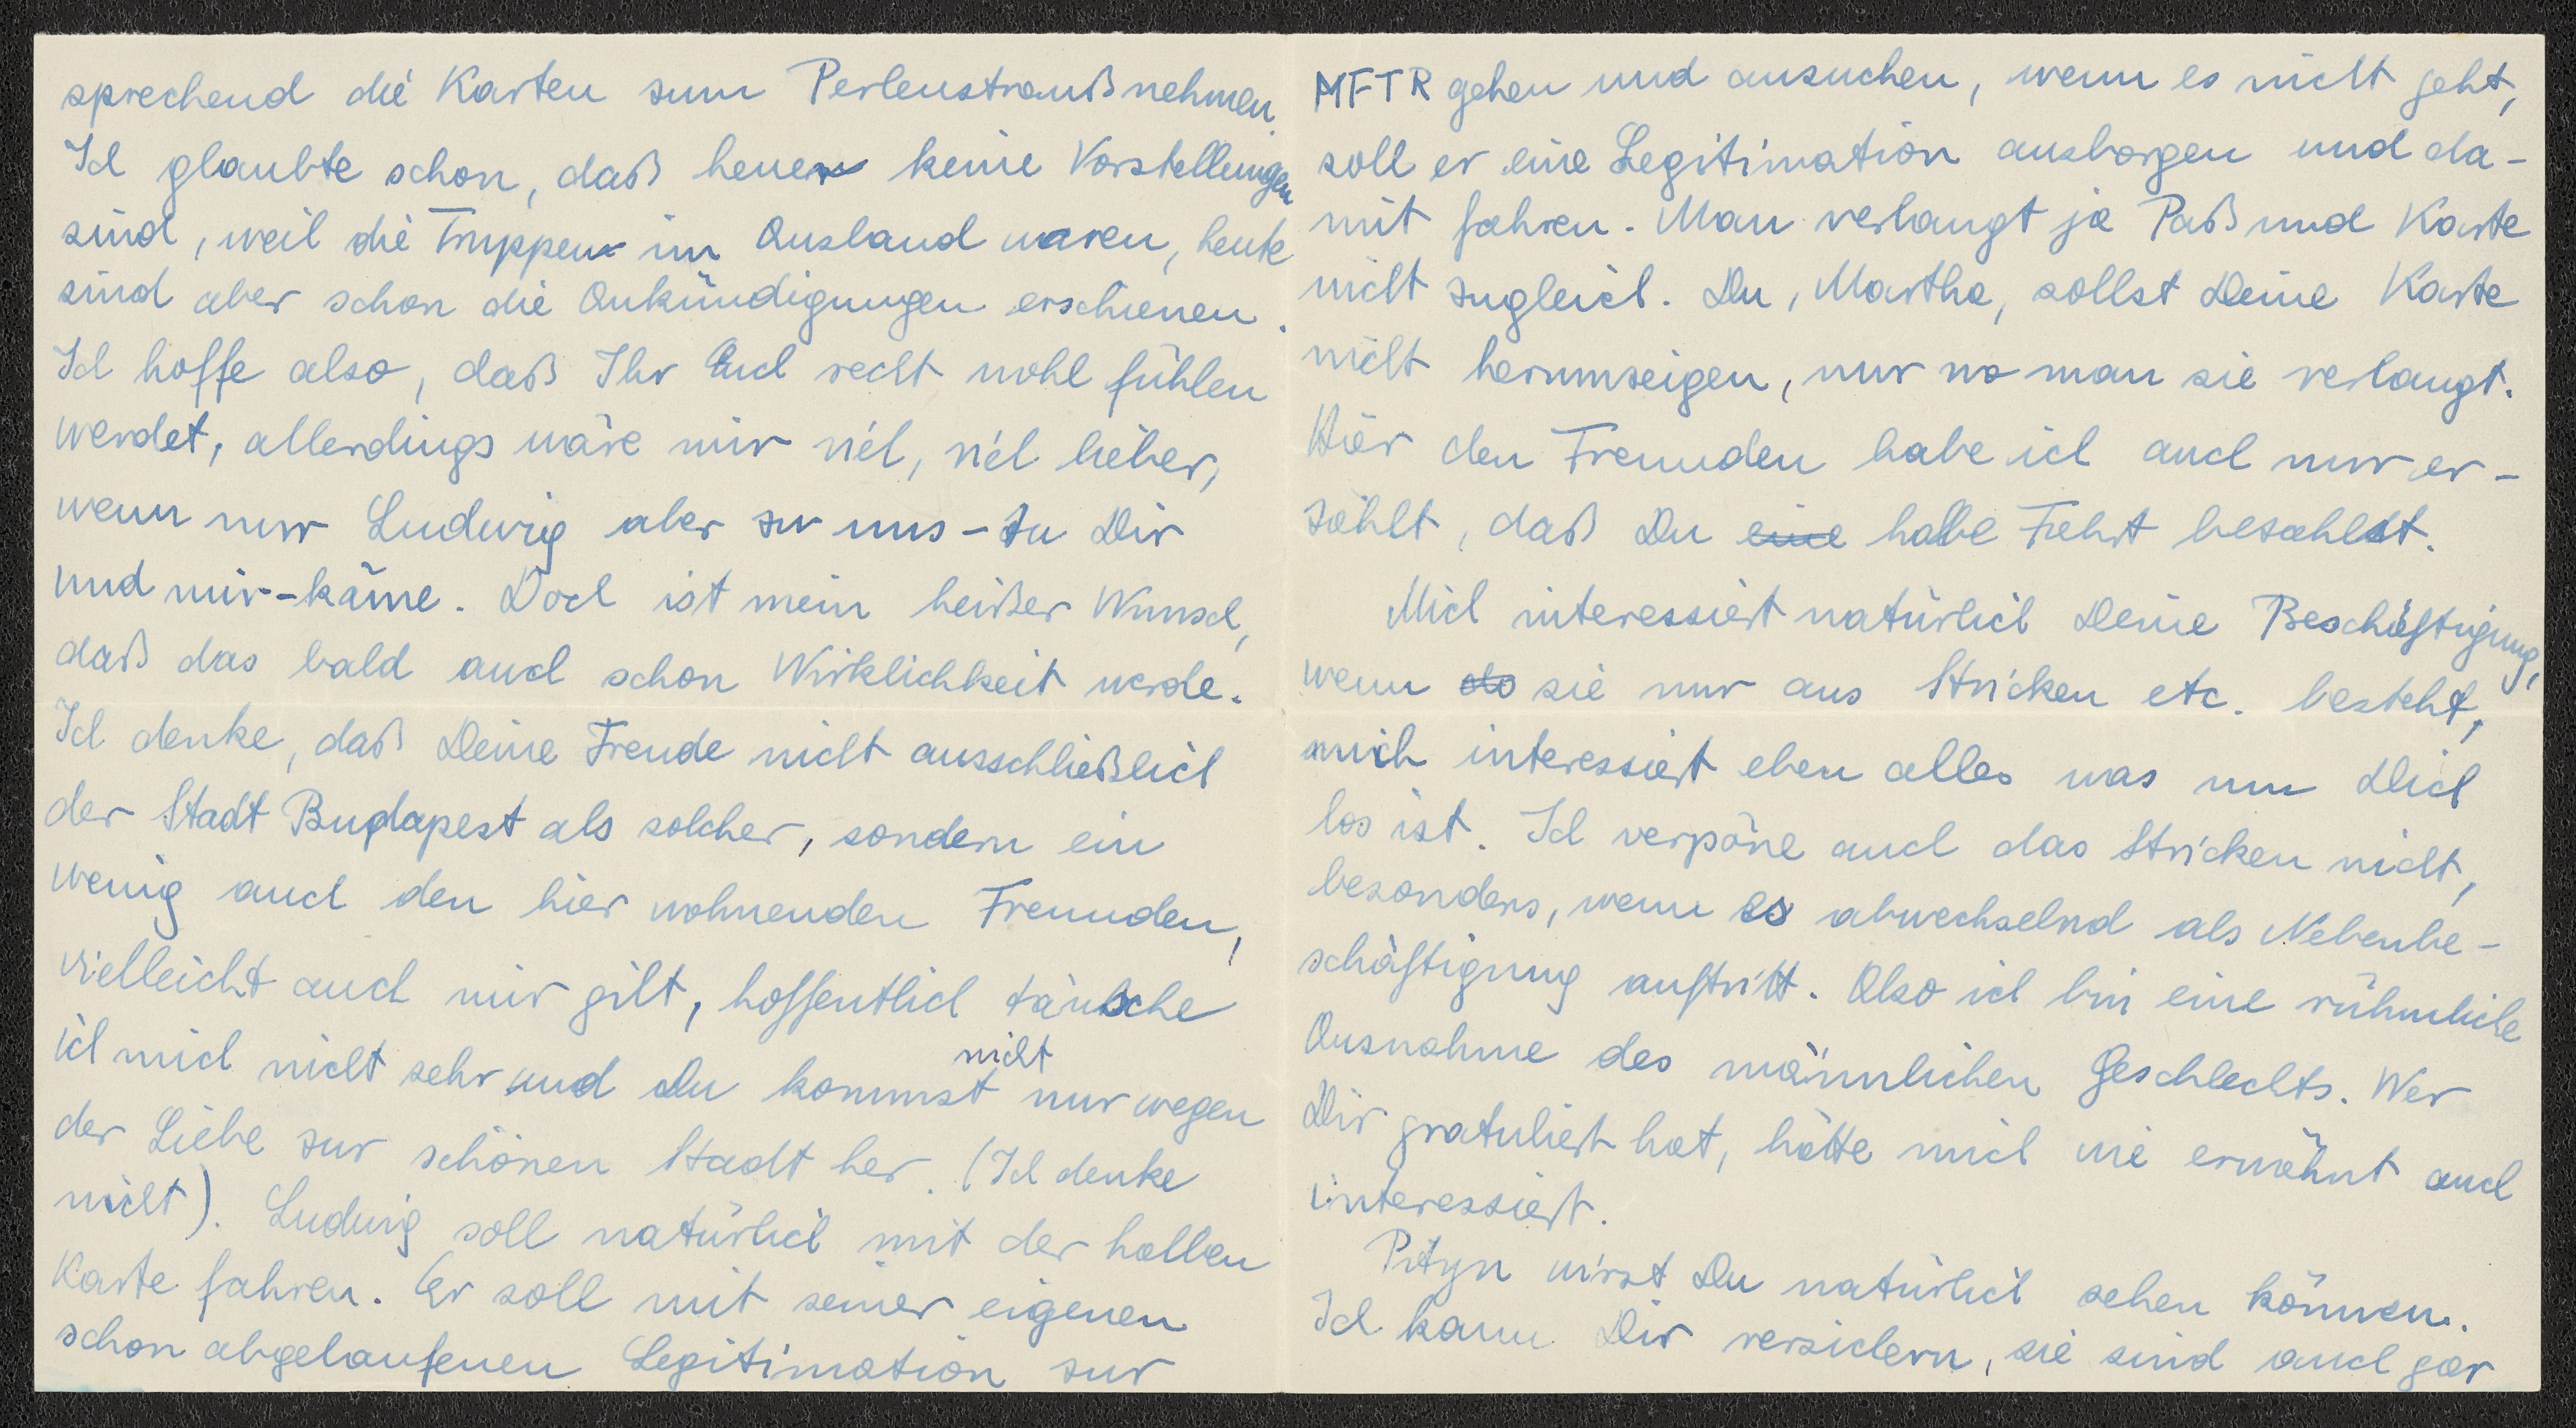 sprechend die Karten zum Perlenstrauß nehmen.
Ich glaubte schon, daß heuer keine Vorstellungen
sind, weil die Truppen im Ausland waren, heute
sind aber schon die Ankündigungen erschienen.
Ich hoffe also, daß Ihr Euch recht wohl fühlen
werdet, allerdings wäre mir viel, viel lieber,
wenn nur Ludwig aber zu uns - zu Dir
und mir - käme. Doch ist mein heißer Wunsch,
daß das bald auch schon Wirklichkeit werde.
Ich denke, daß Deine Freude nicht ausschließlich
der Stadt Budapest als solcher, sondern ein
wenig auch den hier wohnenden Freunden,
vielleicht auch mir gilt, hoffentlich täusche
ich mich nicht sehr und Du kommst nicht nur wegen
der Liebe zur schönen Stadt her. (Ich denke
nicht). Ludwig soll natürlich mit der halben
Karte fahren. Er soll mit seiner eigenen
schon abgelaufenen Legitimation zur
MFTR gehen und ansuchen, wenn es nicht geht,
soll er eine Legitimation ausborgen und da-
mit fahren. Man verlangt ja Paß und Karte
nicht zugleich. Du, Martha, sollst Deine Karte
nicht herumzeigen, nur wo man sie verlangt.
Hier den Freunden habe ich auch nur er-
zählt, daß Du eine halbe Fahrt bezahlst.
Mich interessiert natürlich Deine Beschäftigung,
wenn sie nur aus Stricken etc. besteht,
mich interessiert eben alles was um Dich
los ist. Ich verpöne auch das Stricken nicht,
besonders, wenn es abwechselnd als Nebenbe-
schäftigung auftritt. Also ich bin eine rühmliche
Ausnahme des männlichen Geschlechts. Wer
Dir gratuliert hat, hätte mich wie erwähnt auch
interessiert.
wirst Du natürlich sehen können.
Ich kann Dir versichern, sie sind auch gar